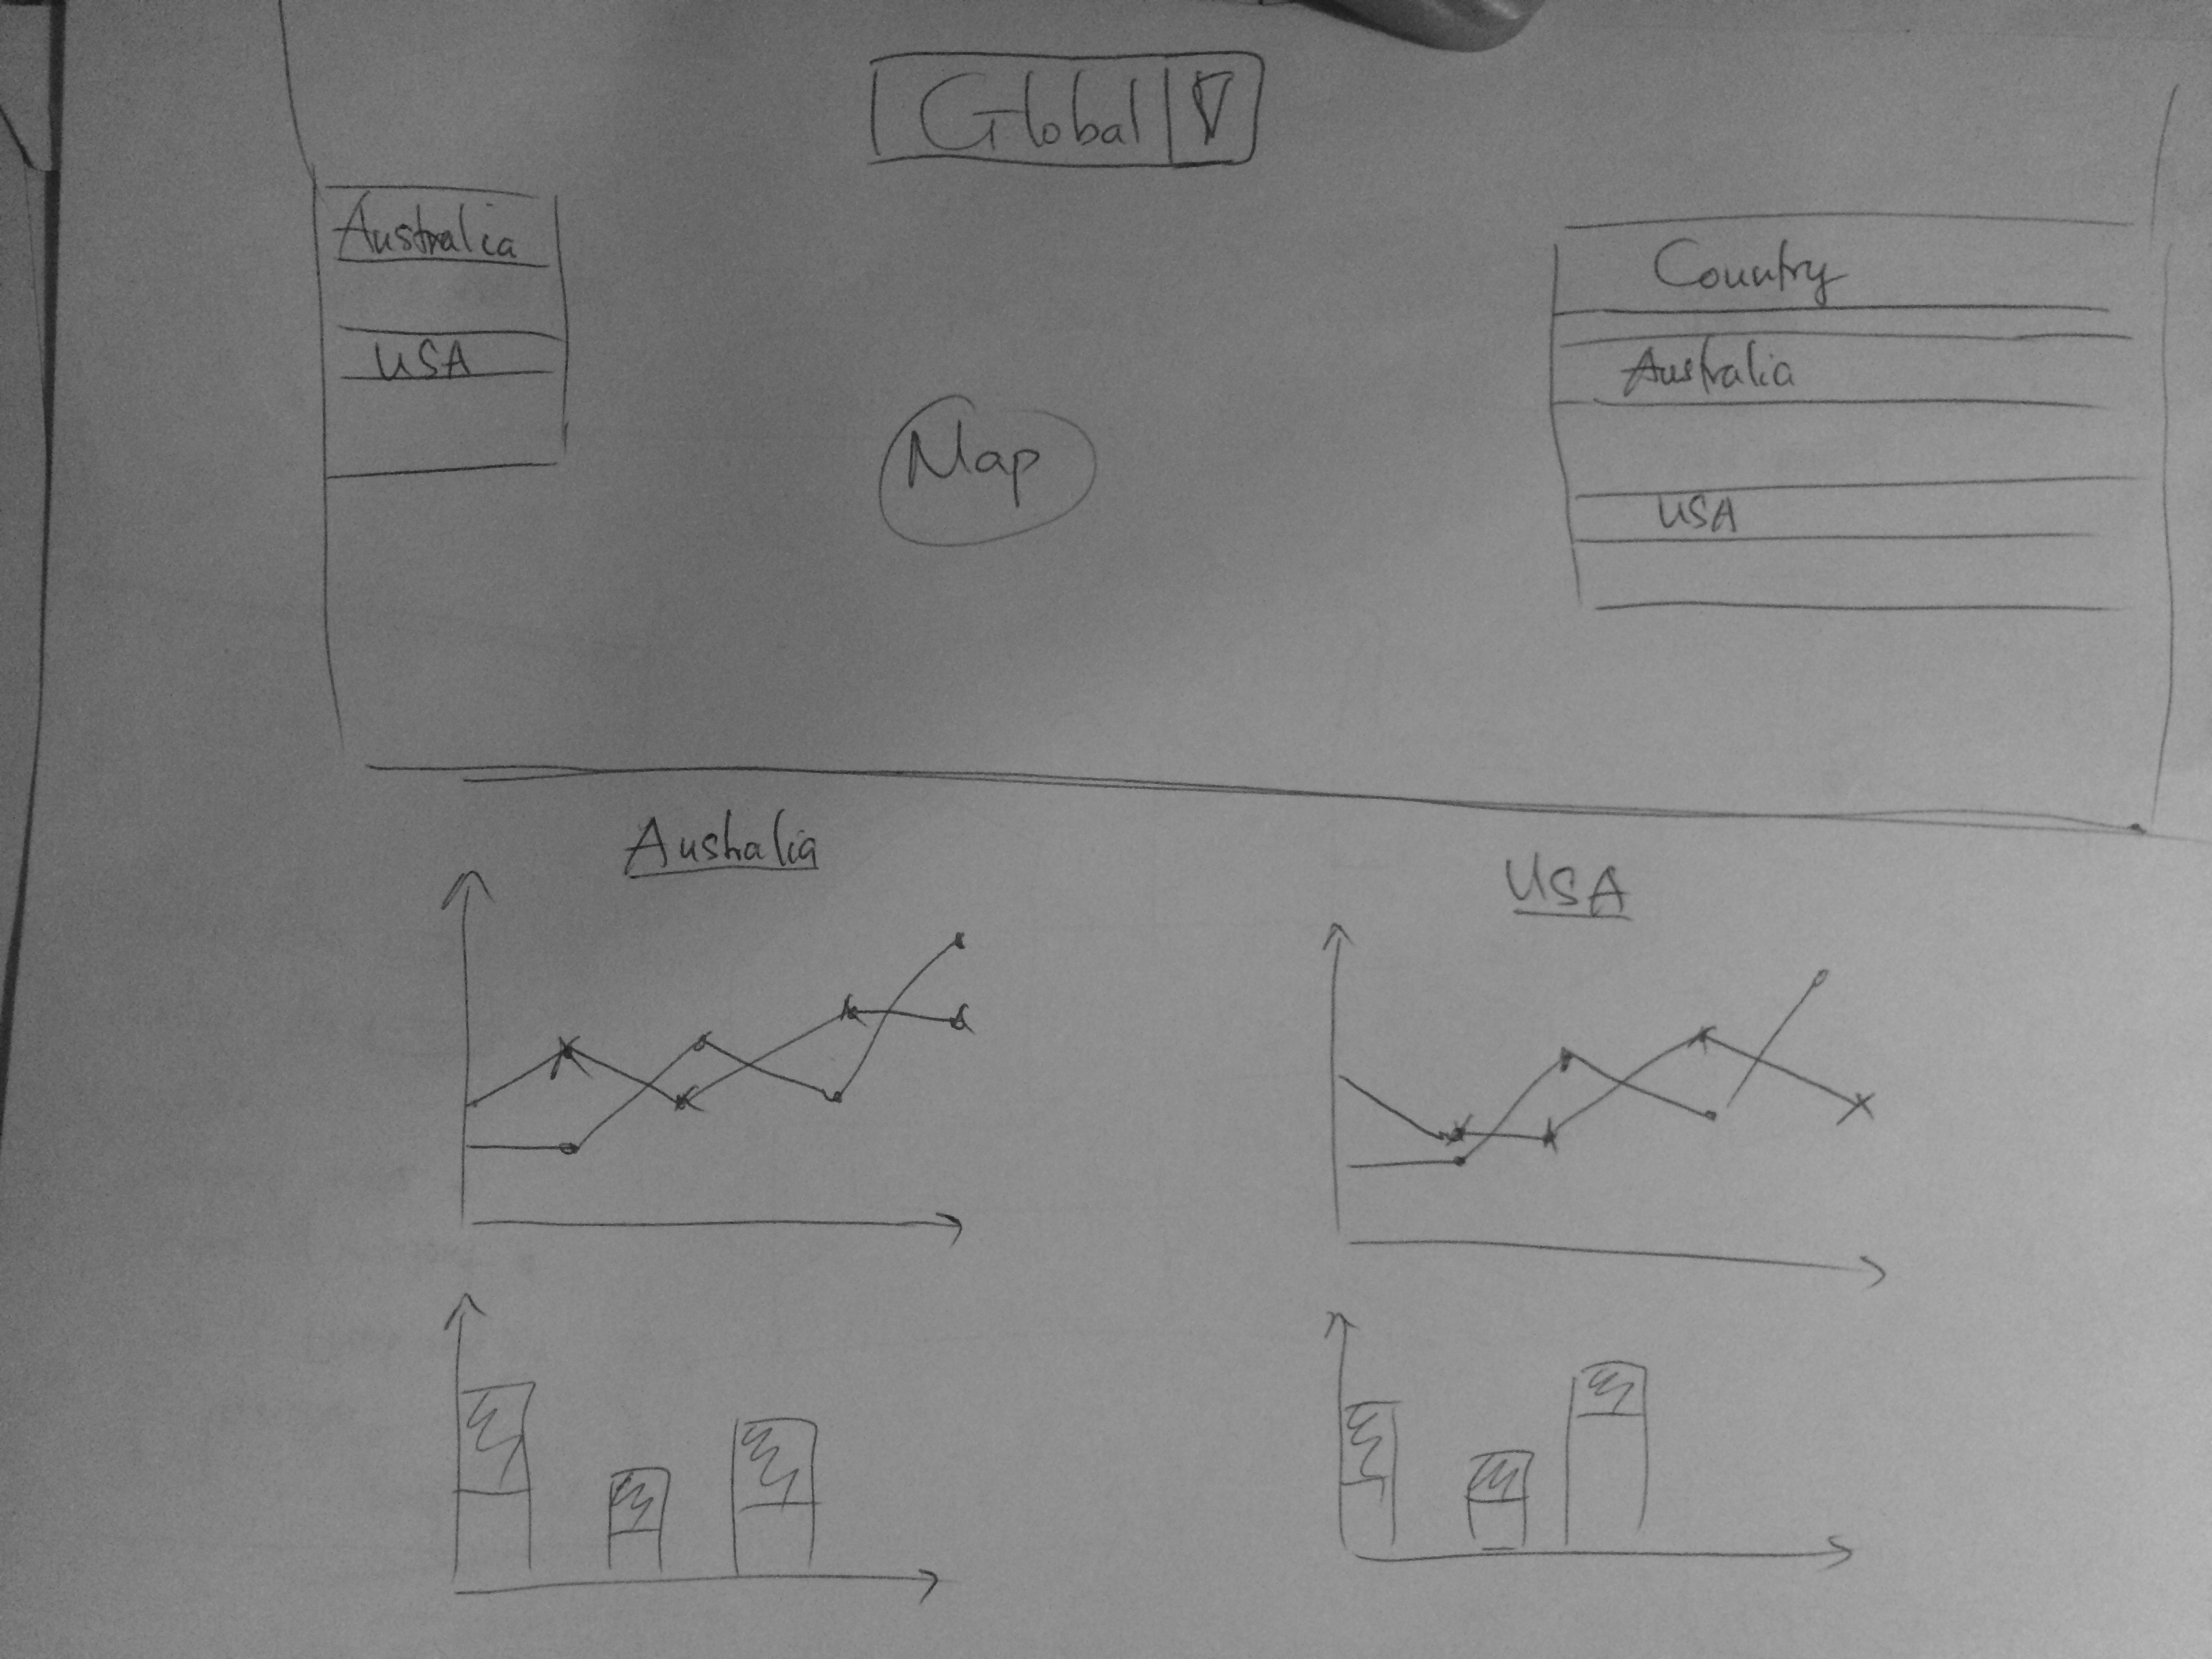 Global
Australia
USA
Map
Country
Australia
USA
Australia
USA